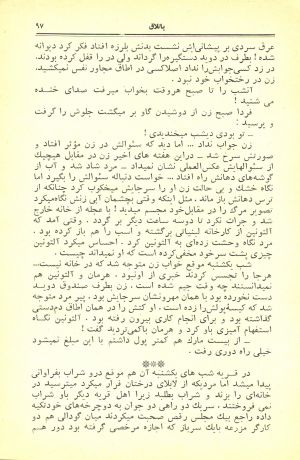 باتلاق ۹۷
عرق سردی بر پیشانی‌اش نشست بدنش بلرزه افتاد فکر کرد دیوانه
شده! بطرف در دوید دستگیره‌را گرداند ولی در را قفل کرده بودند،
در زد کسی جوابش را نداد اصلاکسی در اطاق مجاور نفس نمیکشید،
زن در رختخواب خود نبود.
آنشب را تا صبح هروقت بخواب میرفت صدای خنده
می شنید!
فردا صبح زن از دوشیدن گاو بر میگشت جلوش را گرفت
و پرسید:
ـ تو بودی دیشب میخندیدی!
زن جواب نداد ... اما دید که سئوالش در زن مؤثر افتاد و
صورتش سرخ شد ـ دراین هفته های اخیر زن در مقابل هیچیک
از سئوالهایش عکس‌العملی نشان نمیداد ـ مرد شاد شد و آب از
گوشه‌های دهانش راه افتاد... خواست دنباله سئوالش را بگیرد اما
نگاه خشک و بی حالت زن او را سرجایش میخکوب کرد چنانکه از
ترس دهانش باز ماند. مثل اینکه وقتی بچشمان آبی زنش نگاه‌میکرد
تصویر مرگ را در مقابل‌خود مجسم میدید! با عجله از خانه خارج
شد و جرات نکرد تا دوسه ساعت دیگر بر گردد. وقتی آمد که
آلتونین از کارخانه لبنیاتی برگشته و اسب را هم باز کرده بود.
مرد نگاه وحشت زده‌ای به آلتونین کرد. احساس میکرد آلتونین
چیزی پشت سرخود مخفی‌کرده است که او نمیداند چیست.
شب یکشنبه موقع خواب زن متوجه شد که در خانه نیست...
هرجا را تجسس کردند خبری از اونبود. هرمان و آلتونین هم
نمیدانستند چه وقت جیم شده است. زن بطرف صندوق دوید
دست نخورده بود با همان مهرونشان سرجایش بود، پیر مرد متوجه
شد که کیسه‌پولش‌را زده است. او کتش را در همان اطاق دم‌دستی
گذاشته و برای انجام کاری بیرون رفته بود. آلتونین نگاه
استفهام آمیزی باو کرد و هرمان باکمی‌تردید گفت!
ـ از بیست مارک هم کمتر پول داشتم با این مبلغ نمیشود
خیلی راه دوری رفت.
***
در قریه شب های یکشنبه آن هم موقع درو شراب بفراوانی
پیدا میشد اما مردیکه از لابلای درختان فرار میکرد میترسید در
خانه‌ای را بزند و شراب بطلبد زیرا اهل قریه دیگر باو شراب
نمی فروختند، سریک دو راهی دو جوان به دوچرخه‌های خودتکیه
داده راجع بیک مجلس رقص صحبت میکردند میان گودالی هم دو
کارگر مزرعه بایک سرباز که اجازه مرخصی گرفته بود دور هم